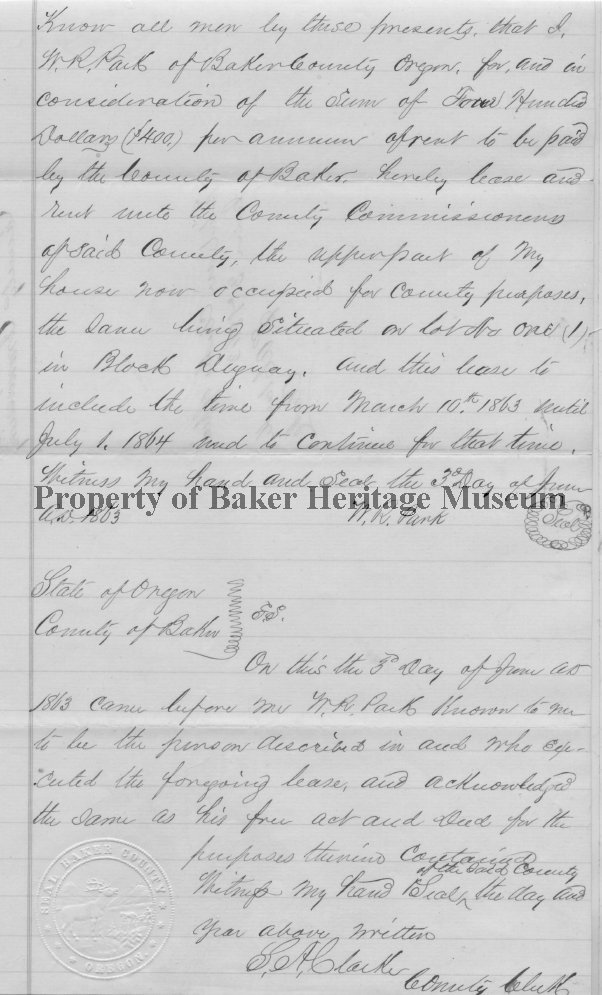 Know all men by these presents, that I,
W. R. Park of Baker County Oregon, for, and in
consideration of the Sum of Four Hundred
Dollars ($400,) per annum of rent to be paid
by the County of Baker, hereby lease and
rent unto the County Commissioners
of said County, the upper part of My
house now occupied for County purposes,
the same being Situated on lot No one (1)
in Block and this lease to
include the time from March 10th 1863 until
July 1, 1864 and to continue for that time.
Witness My hand and Seal the 3d Day of June
AD 1863 W. R. Park Seal
Property of Baker Heritage Museum
State of Oregon
County of Baker S.S.
On this the 3d Day of June AD
1863 came before me W. R. Park Known to me
to be the person described in and who exe-
cuted the foregoing lease, and acknowledged
the same as his free act and Deed for the
purposes therein contained
of the Said County
Witness My hand & Seal, the day and
Year above written
S. A. Clarke
County Clerk
SEAL BAKER COUNTY
OREGON